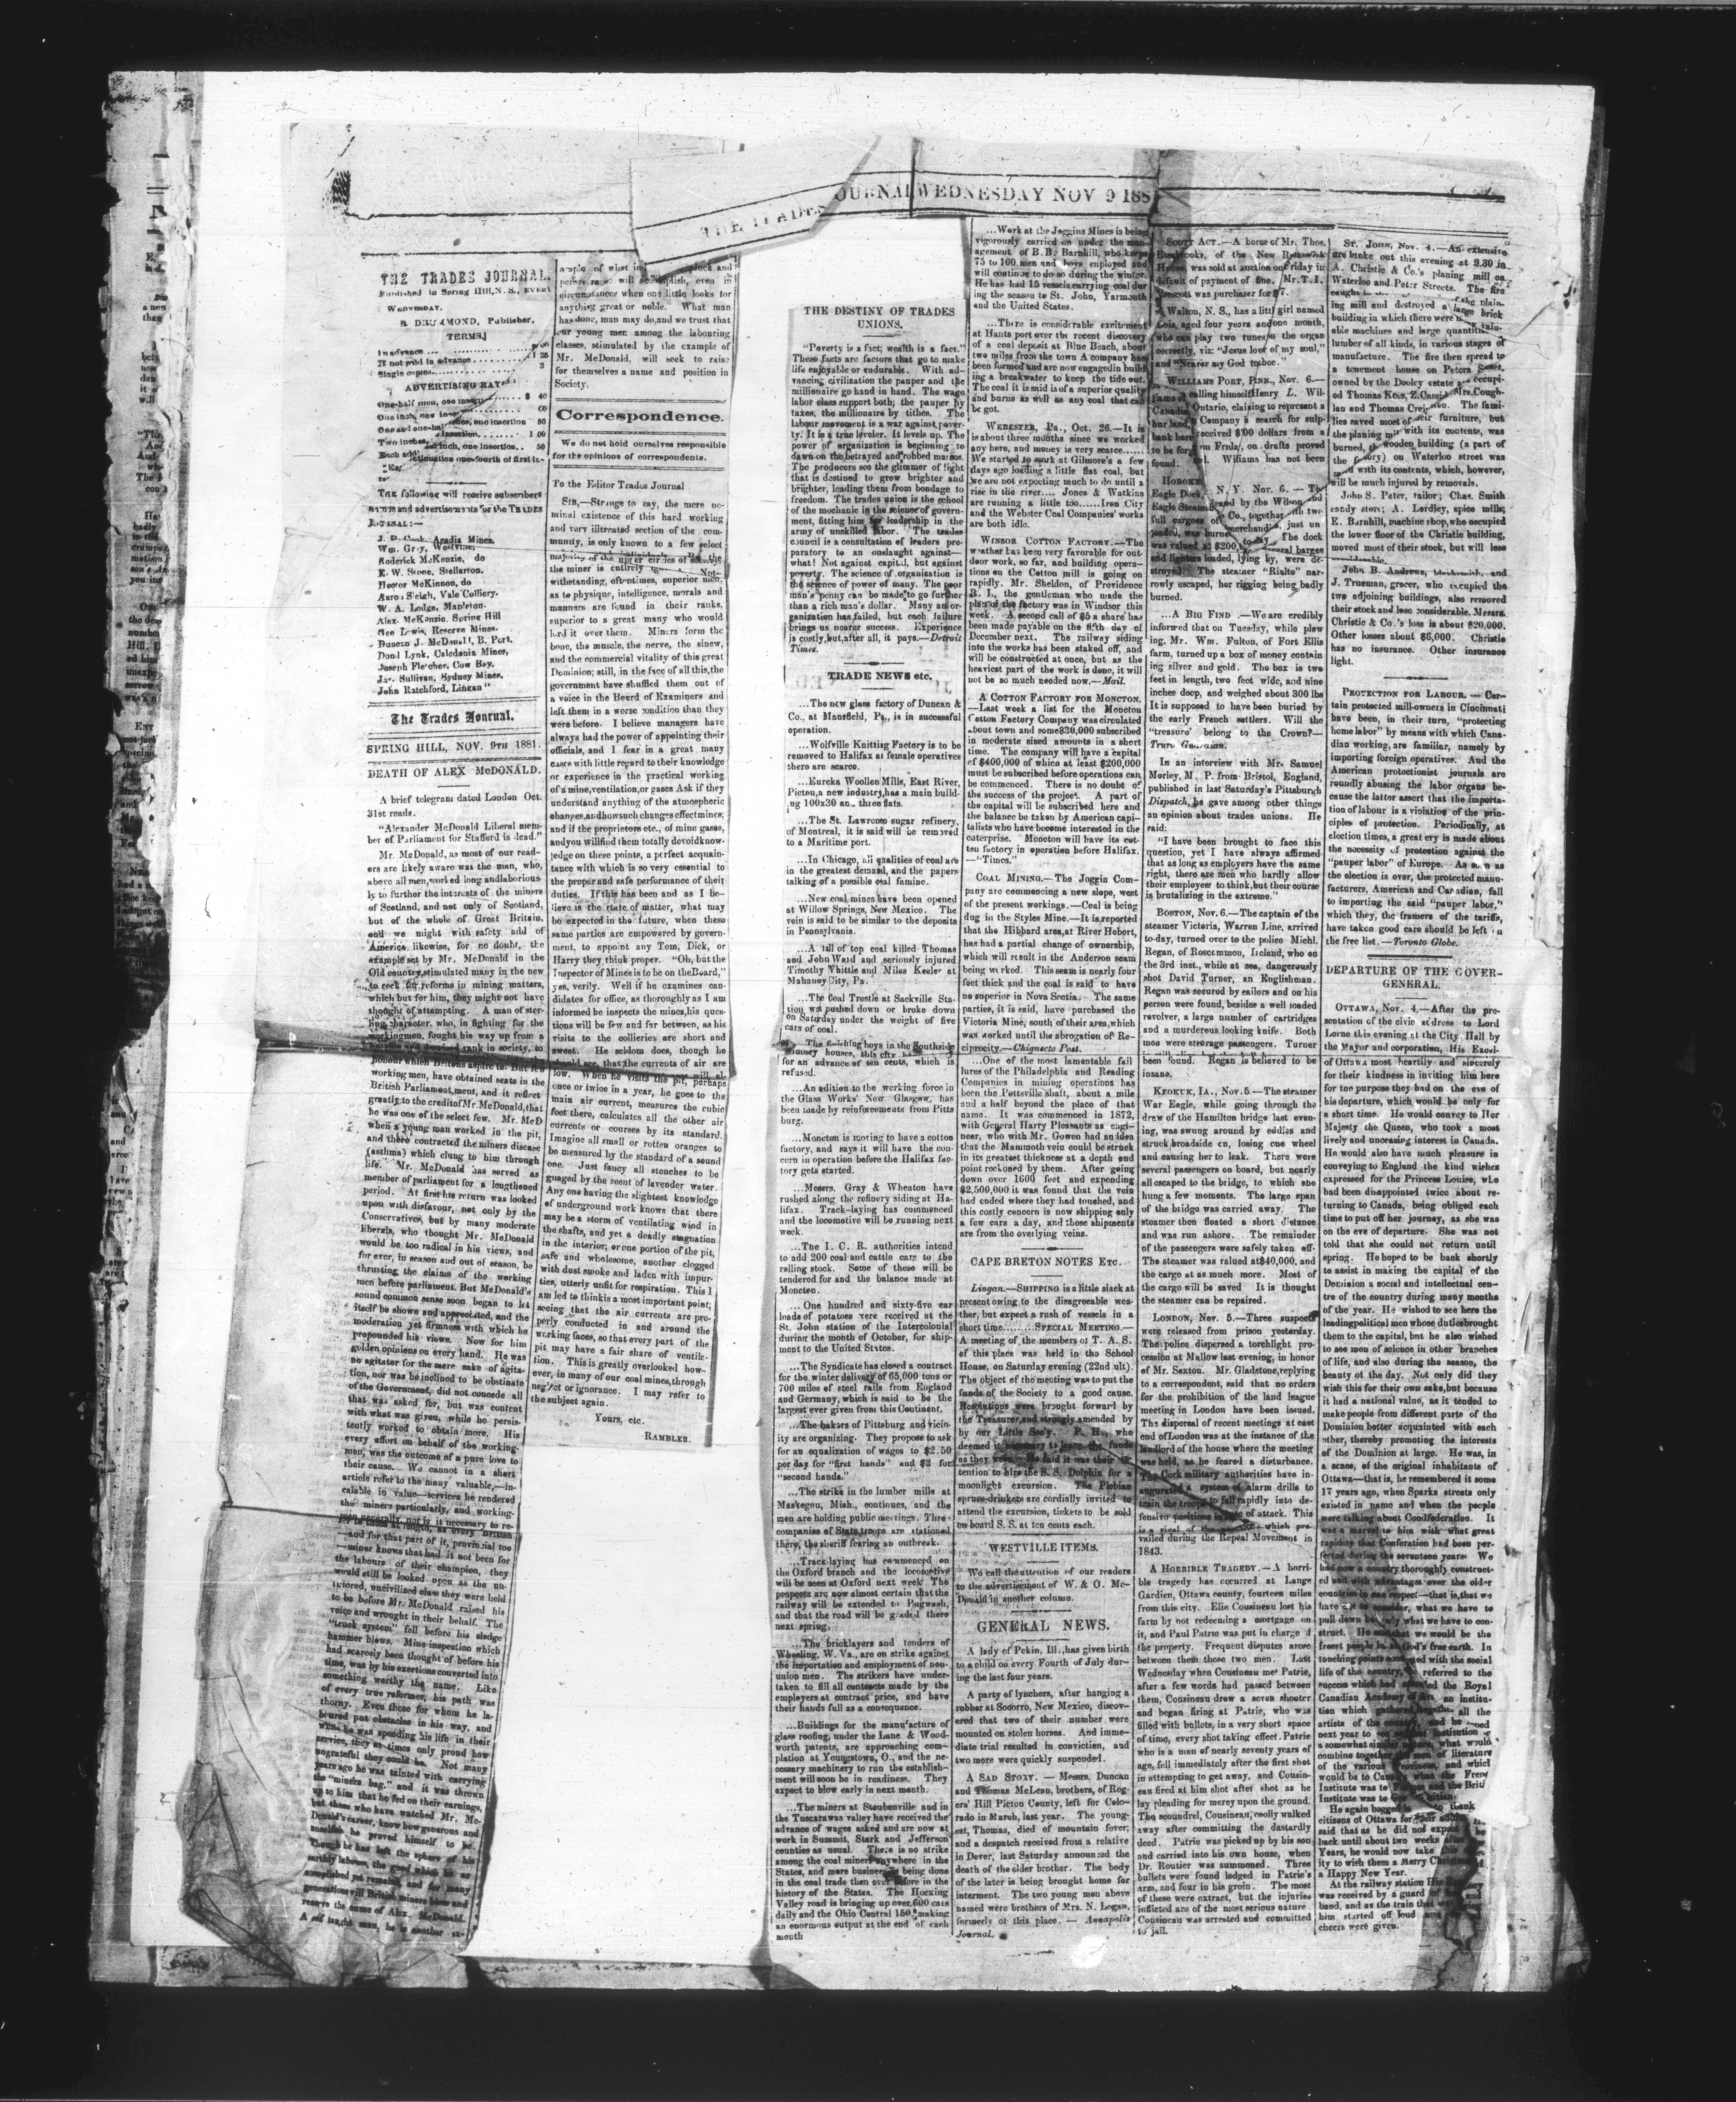 THE TRADES JOURNAL WEDNESDAY NOV 9 188
THE TRADES JOURNAL.
Published in Spring Hill, N. S., EVERY
WEDNESDAY.
Publisher.
TERMS.
In advance
If not paid in advance 1 25
Single copies 3
ADVERTISING RATES
The following will receive subscribers
names and advertisements for the TRADES
JOURNAL:—
Roderick McKenzie, do
E. W. Stone, Stellarton.
Hector McKinnon, do
Vale Colliery.
W. A. Lodge, Mapleton.
Alex. McKenzie, Spring Hill
Geo Lewis, Reserve Mines.
Duncan J. McDonald, B. Port.
Dond Lynk, Caledonia Mines,
Joseph Fletcher, Cow Bay.
Jas. Sullivan, Sydney Mines.
John Ratchford, Lingan"
The Trades Journal.
SPRING HILL, NOV. 9TH 1881.
DEATH OF ALEX McDONALD.
A brief telegram dated London Oct.
31st reads.
"Alexander McDonald Liberal mem-
ber of Parliament for Stafford is dead."
Mr. McDonald, as most of our read-
ers are likely aware was the man, who,
above all men, worked long and laborious-
ly to further the interests of the miners
of Scotland, and not only of Scotland,
but of the whole of Great Britain,
and we might with safety add of
America likewise, for no doubt, the
example set by Mr. McDonald in the
Old country, stimulated many in the new
to seek for reforms in mining matters,
which but for him, they might not have
thought of attempting. A man of ster-
ling character, who, in fighting for the
workingmen, fought his way up from a
rank in society, to
honour which Britons aspire to. But few
working men, have obtained seats in the
British Parliament, and it reflect
greatly to the credit of Mr. McDonald, that
he was one of the select few. Mr. McD
when a young man worked in the pit,
and there contracted the miners disease
(asthma) which clung to him through
life. Mr. McDonald has served as
member of parliament for a lengthened
period. At first his return was looked
upon with disfavour, not only by the
Conservatives, but by many moderate
liberals, who thought Mr. McDonald
would be too radical in his views, and
for ever, in season and out of season, be
thrusting the claims of the working
men before parliament. But McDonald's
sound common sense soon began to let
itself be shown and appreciated, and the
moderation yet firmness with which he
propounded his views. Now for him
golden opinions on every hand. He was
no agitator for the mere sake of agita-
tion, nor was he inclined to be obstinate
of the Government, did not concede all
that was asked for, but was content
with what was given, while he persis-
tently worked to obtain more. His
every effort on behalf of the working-
men, was the outcome of a pure love to
their cause. We cannot in a short
article refer to the many valuable,—in-
calable in value—services he rendered
the miners particularly, and working-
men generally, nor is it necessary to re-
fer to them at length, as every British
—and for that part of it, provincial too
—miner knows that had it not been for
the labours of their champion, they
would still be looked upon as the un-
tutored, uncivilized class they were held
to be before Mr. McDonald raised his
voice and wrought in their behalf. The
"truck system" fell before his sledge
hammer blows. Mine inspection which
had scarcely been thought of before his
time, was by his exertions converted into
something worthy the name. Like
of every true reformer, his path was
thorny. Even those for whom he la-
boured put obstacles in his way, and
when he was spending his life in their
service, they at times only proud how
ungrateful they could be. Not many
years ago he was tainted with carrying
the "miners bag," and it was thrown
up to him that he fed on their earnings,
but those who have watched Mr. Mc-
Donald's career, know how generous and
unselfish he proved himself to be.
Though he has left the sphere of his
earthly labours, the good which he ac
complished yet remains, and for many
generations will British miners bless and
revere the name of Alex. McDonald.
A self taught man, he is another ex-
ample of what pluck and
perseverance will accomplish, even in
circumstances when one little looks for
anything great or noble. What man
has done, man may do, and we trust that
our young men among the labouring
classes, stimulated by the example of
Mr. McDonald, will seek to raise
for themselves a name and position in
Society.
Correspondence.
We do not hold ourselves responsible
for the opinions of correspondents.
To the Editor Trades Journal
SIR,—Strange to say, the mere no-
minal existence of this hard working
and very illtreated section of the com-
munity, is only known to a few select
upper circles of society
the miner is entirely Not-
withstanding, oft-times, superior men,
as to physique, intelligence, morals and
manners are found in their ranks,
superior to a great many who would
lord it over them. Miners form the
bone, the muscle, the nerve, the sinew,
and the commercial vitality of this great
Dominion; still, in the face of all this, the
government have shuffled them out of
a voice in the Board of Examiners and
left them in a worse condition than they
were before. I believe managers have
always had the power of appointing their
officials, and I fear in a great many
cases with little regard to their knowledge
or experience in the practical working
of a mine, ventilation, or gases Ask if they
understand anything of the atmospheric
changes, and how such changes effect mines;
and if the proprietors etc., of mine gases,
and you will find them totally devoid know-
ledge on these points, a perfect acquain-
tance with which is so very essential to
the proper and safe performance of their
duties. If this has been and as I be-
lieve is the state of matter, what may
be expected in the future, when these
same parties are empowered by govern-
ment, to appoint any Tom, Dick, or
Harry they think proper. "Oh, but the
Inspector of Mines is to be on the Board,"
yes, verily. Well if he examines can-
didates for office, as thoroughly as I am
informed he inspects the mines, his ques-
tions will be few and far between, as his
visits to the collieries are short and
sweet. He seldom does, though he
should see, that the currents of air are
low. When he visits the pit, perhaps
once or twice in a year, he goes to the
main air current, measures the cubic
feet there, calculates all the other air
currents or courses by its standard.
Imagine all small or rotten oranges to
be measured by the standard of a sound
one. Just fancy all stenches to be
guaged by the scent of lavender water.
Any one having the slightest knowledge
of underground work knows that there
may be a storm of ventilating wind in
the shafts, and yet a deadly stagnation
in the interior; or one portion of the pit,
safe and wholesome, another clogged
with dust smoke and laden with impur-
ties, utterly unfit for respiration. This I
am led to think is a most important point;
seeing that the air currents are pro-
perly conducted in and around the
working faces, so that every part of the
pit may have a fair share of ventila-
tion. This is greatly overlooked how-
ever, in many of our coal mines, through
neglect or ignorance. I may refer to
the subject again.
Yours, etc.
RAMBLER.
THE DESTINY OF TRADES
UNIONS.
"Poverty is a fact; wealth is a fact."
These facts are factors that go to make
life enjoyable or endurable. With ad-
vancing civilization the pauper and the
millionaire go hand in hand. The wage
labor class support both; the pauper by
taxes, the millionaire by tithes. The
Labour movement is a war against pover-
ty. It is a true leveler. It levels up. The
power of organization is beginning to
dawn on the betrayed and robbed masses.
The producers see the glimmer of light
that is destined to grow brighter and
brighter, leading them from bondage to
freedom. The trades union is the school
of the mechanic in the science of govern-
ment, fitting him for leadership in the
army of unskilled labor. The trades
council is a consultation of leaders pre-
paratory to an onslaught against—
what! Not against capital, but against
poverty. The science of organization is
the science of power of many. The poor
man's penny can be made to go further
than a rich man's dollar. Many an or-
ganization has failed, but each failure
brings us nearer success. Experience
is costly, but, after all, it pays.—Detroit
Times.
TRADE NEWS etc.
...The new glass factory of Duncan &
Co., at Mansfield, Pa., is in successful
operation.
...Wolfville Knitting Factory is to be
removed to Halifax as female operatives
there are scarce.
...Eureka Woollen Mills, East River,
Pictou, a new industry, has a main build-
ng 100x30 an., three flats.
...The St. Lawrence sugar refinery,
of Montreal, it is said will be removed
to a Maritime port.
...In Chicago, all qualities of coal are
in the greatest demand, and the papers
talking of a possible coal famine.
...New coal mines have been opened
at Willow Springs, New Mexico. The
vein is said to be similar to the deposits
in Pennsylvania.
...A fall of top coal killed Thomas
and John Ward and seriously injured
Timothy Whittle and Miles Keeler at
Mahaney City, Pa.
...The Coal Trestle at Sackville Sta-
tion was pushed down or broke down
on Saturday under the weight of five
cars of coal.
...The finishing boys in the Southside
chimney houses, this city
for an advance of ten cents, which is
refused.
...An adition to the working force in
the Glass Works New Glasgow, has
been made by reinforcements from Pitts
burg.
...Moncton is moving to have a cotton
factory, and says it will have the con-
cern in operation before the Halifax fac-
tory gets started.
...Messrs. Gray & Wheaton have
rushed along the refinery siding at Ha-
lifax. Track-laying has commenced
and the locomotive will be running next
week.
...The I. C. R. authorities intend
to add 200 coal and cattle cars to the
rolling stock. Some of these will be
tendered for and the balance made at
Moncton.
...One hundred and sixty-five car
loads of potatoes were received at the
St. John station of the Intercolonial
during the month of October, for ship-
ment to the United States.
...The Syndicate has closed a contract
for the winter delivery of 65,000 tons or
700 miles of steel rails from England
and Germany, which is said to be the
largest ever given from this Continent.
...The bakers of Pittsburg and vicin-
ity are organizing. They propose to ask
for an equalization of wages to $2.50
per day for "first hands" and $2 for
"second hands."
...The strike in the lumber mills at
Maskegou, Mish., continues, and the
men are holding public meetings. Three
companies of State troops are stationed
there, the sheriff fearing an outbreak.
...Track-laying has commenced on
the Oxford branch and the locomotive
will be seen at Oxford next week The
propects are now almost certain that the
railway will be extended to Pugwash,
and that the road will be graded there
next spring.
...The bricklayers and tenders of
Wheeling, W. Va., are on strike against
the importation and employment of non-
union men. The strikers have under-
taken to fill all contracts made by the
employers at contract price, and have
their hands full as a consequence.
...Buildings for the manufacture of
glass roofing, under the Lane & Wood-
worth patents, are approaching com-
plation at Youngstown, O., and the ne-
cessary machinery to run the establish-
ment will soon be in readiness. They
expect to blow early in next month.
...The miners at Steubenville and in
the Tuscarawas valley have received the
advance of wages asked and are now at
work in Summit, Stark and Jefferson
counties as usual. There is no strike
among the coal miners anywhere in the
States, and more business is being done
in the coal trade then ever before in the
history of the States. The Hocking
Valley road is bringing up over 600 cars
daily and the Ohio Central 150, making
an enormous output at the end of each
month
...Work at the Joggins Mines is being
vigorously carried on under the man-
agement of B. B. Barnhill, who keeps
75 to 100 men and boys employed and
will continue to do so during the winter.
He has had 15 vessels carrying coal dur
ing the season to St. John, Yarmouth
and the United States.
...There is considerable excitement
at Hants port over the recent discovery
of a coal deposit at Blue Beach, about
two miles from the town A company has
been formed and are now engaged in build
ing a breakwater to keep the tide out.
The coal it is said is of a superior quality
and burns as well as any coal that can
be got.
WEBESTER, Pa., Oct. 26.—It is
is about three months since we worked
any here, and money is very scarce......
We started to work at Gilmore's a few
days ago loading a little flat coal, but
we are not expecting much to do until a
rise in the river.... Jones & Watkins
are running a little too......Iron City
and the Webster Coal Companies' works
are both idle.
WINSOR COTTON FACTORY.—The
weather has been very favorable for out-
door work, so far, and building opera-
tions on the Cotton mill is going on
rapidly. Mr. Sheldon, of Providence
R. I., the gentleman who made the
plan of the factory was in Windsor this
week. A second call of $5 a share has
been made payable on the fifth day of
December next. The railway siding
into the works has been staked off, and
will be constructed at once, but as the
heaviest part of the work is done, it will
not be so much needed now.—Mail.
A COTTON FACTORY FOR MONCTON.
—Last week a list for the Moncton
Cotton Factory Company was circulated
about town and some $30,000 subscribed
in moderate sized amounts in a short
time. The company will have a capital
of $400,000 of which at least $200,000
must be subscribed before operations can
be commenced. There is no doubt of
the success of the project. A part of
the capital will be subscribed here and
the balance be taken by American capi-
talists who have become interested in the
enterprise. Moncton will have its cot-
ten factory in operation before Halifax.
—"Times."
COAL MINING.—The Joggin Com-
pany are commencing a new slope, west
of the present workings.—Coal is being
dug in the Styles Mine.—It is reported
that the Hibbard area, at River Hebert,
has had a partial change of ownership,
which will result in the Anderson seam
being worked. This seam is nearly four
feet thick and the coal is said to have
no superior in Nova Scotia. The same
parties, it is said, have purchased the
Victoria Mine, south of their area, which
was worked until the abrogation of Re-
ciprocity.—Chignecto Post.
...One of the most lamentable fail
lures of the Philadelphia and Reading
Companies in mining operations has
been the Pottsville shaft, about a mile
and a half beyond the place of that
name. It was commenced in 1872,
with General Harry Pleasants as engi-
neer, who with Mr. Gowen had an idea
that the Mammoth vein could be struck
in its greatest thickness at a depth end
point reckoned by them. After going
down over 1600 feet and expending
$2,500,000 it was found that the vein
had ended where they had touched, and
this costly concern is now shipping only
a few cars a day, and those shipments
are from the overlying veins.
CAPE BRETON NOTES ETC.
Lingan.—SHIPPING is a little slack at
present owing to the disagreeable wea-
ther, but expect a rush of vessels in a
short time........SPECIAL MEETING.—
A meeting of the members of T. A. S.
of this place was held in the School
House, on Saturday evening (22nd ult).
The object of the meeting was to put the
funds of the Society to a good cause.
Resolutions were brought forward by
the Treasurer, and strongly amended by
by our Little Sec'y. P. H., who
deemed it necessary to leave the funds
as they were. He said it was their in-
tention to hire the S. S. Dolphin for a
moonlight excursion. The Plebian
spruce-drinkers are cordially invited to
attend the excursion, tickets to be sold
on board S. S. at ten cents each.
WESTVILLE ITEMS.
We call the attention of our readers
to the advertisement of W. & O. Mc-
Donald in another column.
GENERAL NEWS.
A lady of Pekin, Ill., has given birth
to a child on every Fourth of July dur-
ing the last four years.
A party of lynchers, after hanging a
robber at Socorro, New Mexico, discov-
ered that two of their number were
mounted on stolen horses. And imme-
diate trial resulted in conviction, and
two more were quickly suspended.
A SAD STORY. — Messrs. Duncan
and Thomas McLean, brothers, of Rog-
ers' Hill Pictou County, left for Colo-
rado in March, last year. The young-
est, Thomas, died of mountain fever;
and a despatch received from a relative
in Dever, last Saturday announced the
death of the elder brother. The body
of the later is being brought home for
interment. The two young men above
named were brothers of Mrs. N. Logan,
formerly of this place. — Annapolis
Journal.
SCOTT ACT.—A horse of Mr. Thos.
Estabrooks, of the New Brunswick
House was sold at auction on Friday in
default of payment of fine. Mr. T. I.
was purchaser for $7.
Walton, N. S., has a little girl named
Lois, aged four years and one month,
who can play two tunes on the organ
correctly, viz: "Jesus lover of my soul,"
and "Nearer my God to thee."
WILLIAMS PORT, PINN., Nov. 6.—
calling himself Henry L. Wil-
Ontario, claiming to represent a
Company a search for sulp-
received $ 00 dollars from a
bank here on Friday, on drafts proved
to be forg Wiliams has not been
found.
HOBOKE N. Y. Nov. 6. — Th
Eagle Dock, and by the Wilson and
Eagle Steam Co., together with two
full cargoes of merchandise, just un
loaded, was burne to-day The dock
was valued at $200 several barges
and lighters loaded, lying by, were de-
stroyed. The steamer "Rialto" nar-
rowly escaped, her rigging being badly
burned.
A BIG FIND.—We are credibly
informed that on Tuesday, while plow
ing, Mr. Wm. Fulton, of Fort Ellis
farm, turned up a box of money contain
ing silver and gold. The box is two
feet in length, two feet wide, and nine
inches deep, and weighed about 300 lbs
It is supposed to have been buried by
the early French settlers. Will the
"treasure' belong to the Crown?—
Truro Guardian.
In an interview with Mr. Samuel
Morley, M. P. from Bristol, England,
published in last Saturday's Pittsburgh
Dispatch, he gave among other things
an opinion about trades unions. He
said:
"I have been brought to face this
question, yet I have always affirmed
that as long as employers have the same
right, there are men who hardly allow
their employees to think, but their course
is brutalizing in the extreme."
BOSTON, Nov. 6.—The captain of the
steamer Victoria, Warren Line, arrived
to-day, turned over to the police Michl.
Regan, of Roscommon, Ireland, who on
the 3rd inst., while at sea, dangerously
shot David Turner, an Englishman.
Regan was secured by sailors and on his
person were found, besides a well loaded
revolver, a large number of cartridges
and a murderous looking knife. Both
men were steerage passengers. Turner
been found. Regan is believed to be
insane.
KEOKUK, IA., Nov. 5.—The steamer
War Eagle, while going through the
draw of the Hamilton bridge last even-
ing, was swung around by eddies and
struck broadside on, losing one wheel
and causing her to leak. There were
several passengers on board, but nearly
all escaped to the bridge, to which she
hung a few moments. The large span
of the bridge was carried away. The
steamer then floated a short distance
and was run ashore. The remainder
of the passengers were safely taken off.
The steamer was valued at $40,000, and
the cargo at as much more. Most of
the cargo will be saved It is thought
the steamer can be repaired.
LONDON, Nov. 5.—Three suspects
were released from prison yesterday.
The police dispersed a torchlight pro-
cession at Mallow last evening, in honor
of Mr. Sexton. Mr. Gladstone, replying
to a correspondent, said that no orders
for the prohibition of the land league
meeting in London have been issued.
The dispersal of recent meetings at east
end of London was at the instance of the
landlord of the house where the meeting
was held, as he feared a disturbance.
The Cork military authorities have in-
augurated a system of alarm drills to
train the troops to fall rapidly into de-
fensive positions in of attack. This
which pre-
vailed during the Repeal Movement in
1843.
A HORRIBLE TRAGEDY.—A horri-
ble tragedy has occurred at Lange
Gardien, Ottawa county, fourteen miles
from this city. Elie Cousineau lost his
farm by not redeeming a mortgage on
it, and Paul Patrie was put in charge of
the property. Frequent disputes arose
between them these two men. Last
Wednesday when Cousineau met Patrie,
after a few words had passed between
them, Cousineau drew a seven shooter
and began firing at Patrie, who was
filled with bullets, in a very short space
of time, every shot taking effect. Patrie
who is a man of nearly seventy years of
age, fell immediately after the first shot
in attempting to get away, and Cousin-
eau fired at him shot after shot as he
lay pleading for mercy upon the ground.
The scoundrel, Cousineau, coolly walked
away after committing the dastardly
deed. Patrie was picked up by his son
and carried into his own house, when
Dr. Routier was summoned. Three
bullets were found lodged in Patrie's
arm, and four in his groin. The most
of these were extract, but the injuries
inflicted are of the most serious nature.
Cousineau was arrested and committed
to jail.
ST. JOHN, Nov. 4.—An extensive
fire broke out this evening at 9.30 in
A. Christie & Co.'s planing mill on
Waterloo and Peter Streets. The fire
caught in the plain-
ing mill and destroyed a large brick
building in which there were valu-
able machines and large quantities
lumber of all kinds, in various stages of
manufacture. The fire then spread to
a tenement house on Peters Street,
owned by the Dooley estate and occupi-
ed Thomas Kees, Z. Cassid Mrs. Cough-
lan and Thomas Creig The fami-
lies saved most of their furniture, but
the planing mill with its contents, was
burned, the wooden building (a part of
the factory) on Waterloo street was
with its contents, which, however,
will be much injured by removals.
John S. Peter, tailor; Chas. Smith
candy store; A. Lordley, spice mills;
E. Barnhill, machine shop, who occupied
the lower floor of the Christie building,
moved most of their stock, but will lose
John B. Andrews, blacksmith, and
J. Trueman, grocer, who occupied the
two adjoining buildings, also removed
their stock and less considerable. Messrs.
Christie & Co.'s loss is about $20,000.
Other losses about $6,000. Christie
has no insurance. Other insurance
light.
PROTECTION FOR LABOUR. — Cer-
tain protected mill-owners in Cincinnati
have been, in their turn, "protecting
home labor" by means with which Cana-
dian working, are familiar, namely by
importing foreign operatives. And the
American protectionist journals are
roundly abusing the labor organs be-
cause the latter assert that the importa-
tion of labour is a violation of the prin-
ciples of protection. Periodically, at
election times, a great cry is made about
the necessity of protection against the
"pauper labor" of Europe. As soon as
the election is over, the protected manu-
facturers, American and Canadian, fall
to importing the said "pauper labor,"
which they, the framers of the tariffs,
have taken good care should be left on
the free list.—Toronto Globe.
DEPARTURE OF THE GOVER-
GENERAL.
OTTAWA, Nov. 4.—After the pre-
sentation of the civic address to Lord
Lorne this evening at the City Hall by
the Mayor and corporation, His Excel-
of Ottawa most heartily and sincerely
for their kindness in inviting him here
for the purpose they had on the eve of
his departure, which would be only for
a short time. He would convey to Her
Majesty the Queen, who took a most
lively and unceasing interest in Canada.
He would also have much pleasure in
conveying to England the kind wishes
expressed for the Princess Louise, who
had been disappointed twice about re-
turning to Canada, being obliged each
time to put off her journey, as she was
on the eve of departure. She was not
told that she could not return until
spring. He hoped to be back shortly
to assist in making the capital of the
Dominion a social and intellectual cen-
tre of the country during many months
of the year. He wished to see here the
leading political men whose duties brought
them to the capital, but he also wished
to see men of science in other branches
of life, and also during the season, the
beauty of the day. Not only did they
wish this for their own sake, but because
it had a national value, as it tended to
make people from different parts of the
Dominion better acquainted with each
other, thereby promoting the interests
of the Dominion at large. He was, in
a sense, of the original inhabitants of
Ottawa—that is, he remembered it some
17 years ago, when Sparks streets only
existed in name and when the people
were talking about Condfederation. It
was a marvel to him with what great
rapidity that Conferation had been per-
fected during the seventeen years We
had now a country thoroughly construct-
ed and with advantages over the older
countries in one respect—that is, that we
have not to consider, what we have to
pull down but only what we have to con-
struct. He said that we would be the
freest people in all God's free earth. In
touching points connected with the social
life of the country, referred to the
success which had attended the Royal
Canadian Academy of Art, an institu-
tion which gathered together all the
artists of the country and he hoped
next year to see another institution of
a somewhat similar nature, what would
combine together men of literature
of the various Provinces, and which
would be to Canada what the French
Institute was to France and the Brit
Institute was to
He again begged to thank
citizens of Ottawa for their
said that as he did not expect be
back until about two weeks after
Years, he would now take this
ity to wish them a Merry Christmas
a Happy New Year.
At the railway station His Ex
was received by a guard of and
band, and as the train that
him started off loud and
cheers were given.